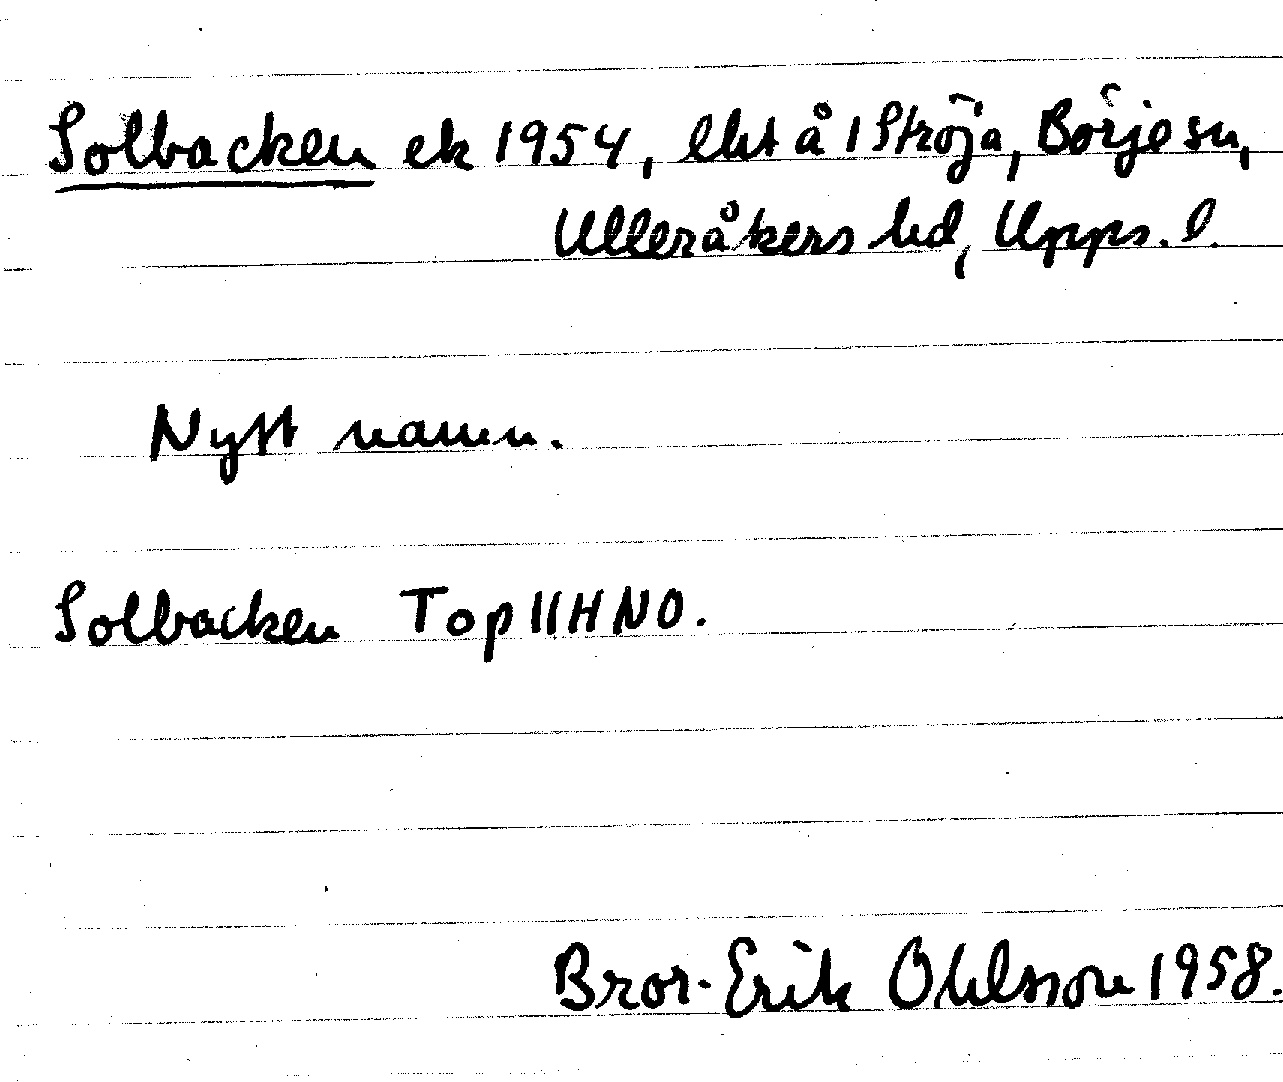 Solbacken ek 1954, lht å 1 Ströja, Börje sn,
Ulleråkers hd, Upps. l.
Nytt namn.
Solbacken Top 11H NO.
Bror-Erik Ohlsson 1958.